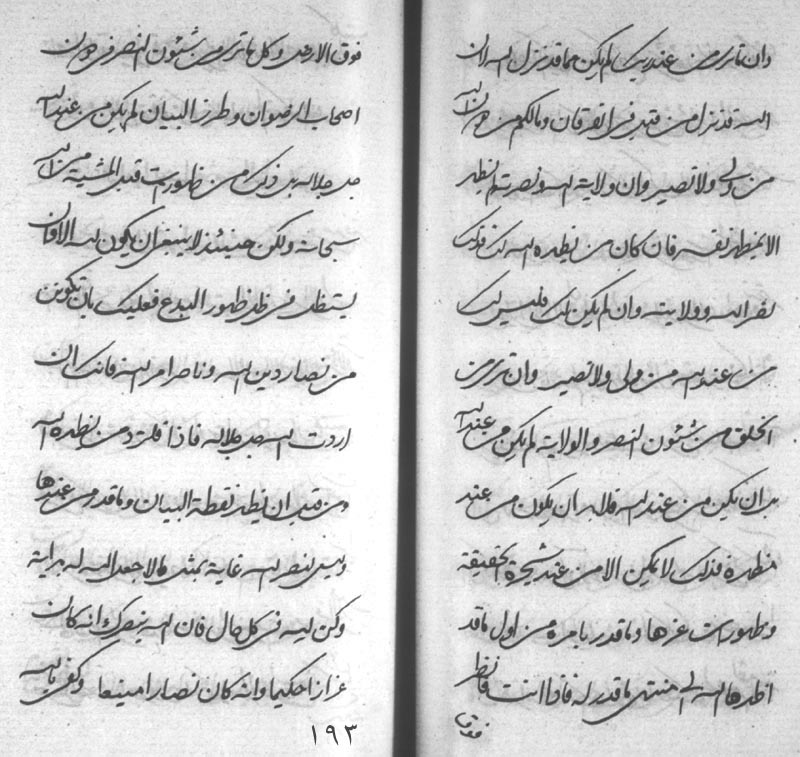 وان تری من عند ربک لم یکن مما قد نزل الله الان
الله قد نزل من قبل فی الفرقان وما لکم من دون الله
من ولی ولا نصیر وان ولایة الله ونصرته لم یظهر
الا بمظهر نفسه فان کان من یظهره الله لک فذلک
نصر الله وولایته وان لم یکن لک فلیس لک
من عند الله من ولی ولا نصیر وان تری من
الخلق من شئون النصر والولایة لم یکن من عند الله
بل ان یکن من عند الله فلابد ان یکون من عند
مظهره فذلک لا یمکن الا من عند شجرة الحقیقة
وظهورات عزها وما قدر بامره من اول ما قد
اظهرها الله الی منتهی ما قدر له فاذا انت فانظر
فوق
فوق الارض وکل ما تری من شئون النصر فی دون
اصحاب الرضوان وطرز البیان لم یکن من عند الله
جل جلاله بل ذلک من ظهورات قبل المشیة من الله
سبحانه ولکن حینئذ لا ینبغی ان یکون لله الا وان
یستظل فی ظل ظهور البدع فعلیک بان تکونن
من نصار دین الله وناصر امر الله فانک ان
اردت الله جل جلاله فاذا فلترد من یظهره الله
ومن قبل ان یظهر نقطة البیان وما قدر من عندها
ولیس لنصر الله غایة بمثل ما لا جعل الله له بدایة
وکن لله فی کل حال فان الله ینصرک انه کان
عزازا حکیما وانه کان نصارا منیعا وکفی بالله
١٩٣